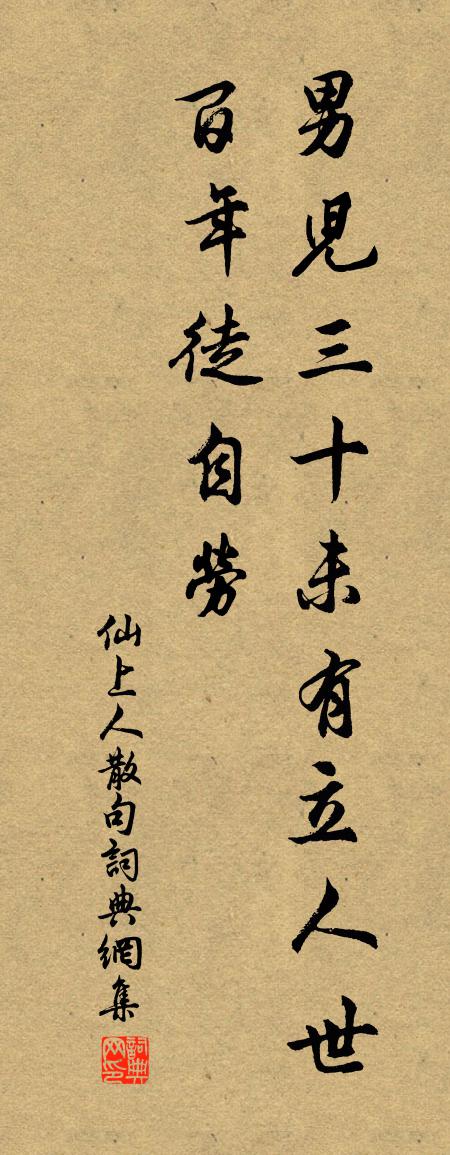 男兒三十未有立人世
百年徒自勞
仙上人散句詞典網集
詞典网印